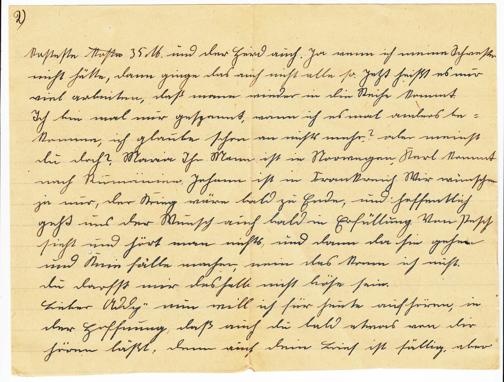 2)
kostete 35 M. und der Herd auch. Ja wenn ich meine Schwester
nicht hätte, dann ginge das auch nicht alle so. Jetzt heißt es nur
viel arbeiten, daß man wieder in die Reihe kommt.
Ich bin mal nur gespannt, wann ich es mal anders be-
kommen, ich glaube schon an nichts mehr? aber meinst
du doch? Maria Ihr Mann ist in Norwegen, Karl kommt
nach Rumänien, Johann ist in Frankreich. Wir wünschen
ja nur, der Krieg wäre bald zu Ende, und hoffentlich
geht uns der Wunsch auch bald in Erfüllung. Von
sieht und hört man nichts, und dann da hin gehen
und Kniefälle machen, nein das kann ich nicht.
du darfst mir deshalb nicht böse sein.
Lieber Addy nun will ich für heute aufhören, in
der Hoffnung, daß auch du bald etwas von dir
hören läßt, denn auch dein Brief ist fällig, aber